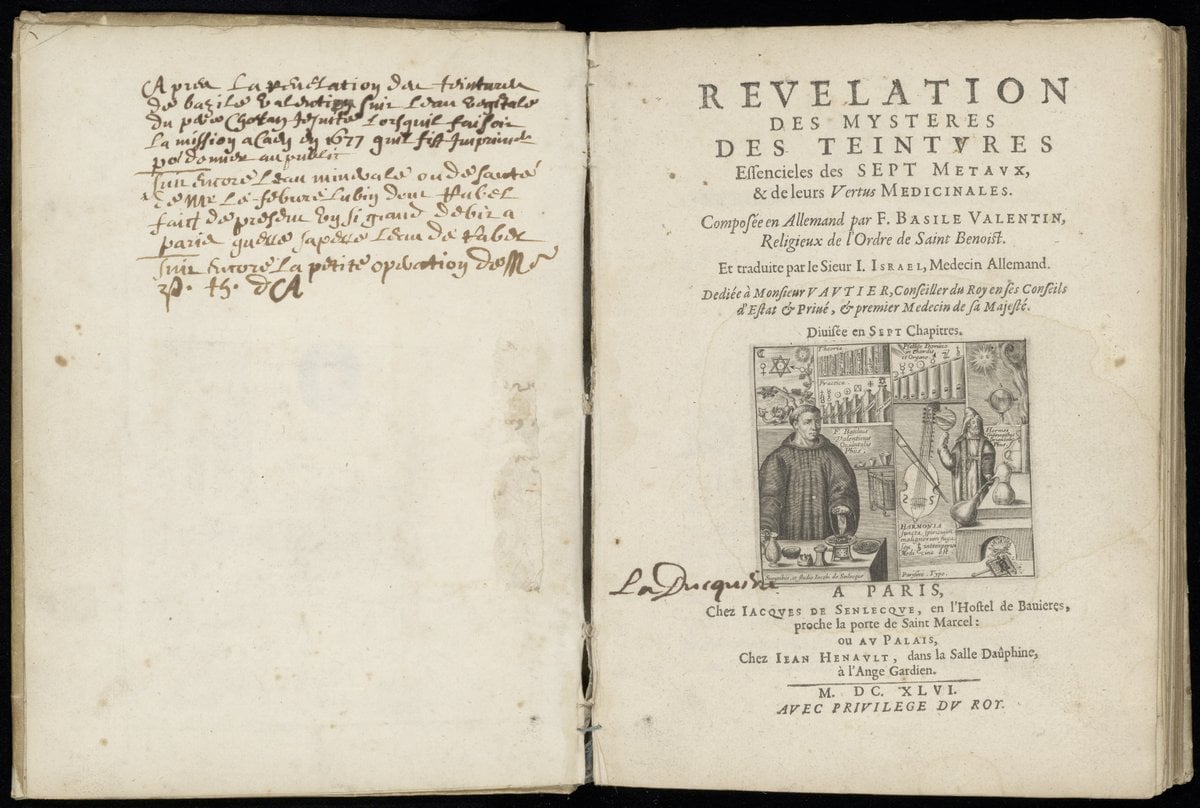 Apres La Revelation des teintures
de bazile Valentin suit Leau vegetale
du pere Chotan Jesuitte Lorsquil faisoit
La mission a Caen en 1677 quil fist Imprimer
po donner au public
suit encore Leau minerale ou de santé
de Mr Le febure Lubin dont Rabel
faict de present un si grand debit a
paris quelle sapelle Leau de Rabel
suit encore La petite operation de Mr
d CA
REVELATION
DES MYSTERES
DES TEINTVRES
Essencieles des SEPT METAVX,
& de leurs Vertus MEDICINALES.
Composée en Allemand par F. BASILE VALENTIN,
Religieux de l'Ordre de Saint Benoist.
Et traduite par le Sieur I. ISRAEL, Medecin Allemand.
Dediée à Monsieur VAVTIER, Conseiller du Roy en ses Conseils
d'Estat & Priué, & premier Medecin de sa Majesté.
Diuisée en SEPT Chapitres.
Theoria
Practica
F. Basilius
Valentinus
Occidentalis
Phus.
et Chordis
et Organo
Hermes
Phus.
HARMONIA
La Ducquerie
A PARIS,
Chez IACQVES DE SENLECQVE, en l'Hostel de Bauieres,
proche la porte de Saint Marcel:
ou AV PALAIS,
Chez IEAN HENAVLT, dans la Salle Daûphine,
à l'Ange Gardien.
M. DC. XLVI.
AVEC PRIVILEGE DV ROY.